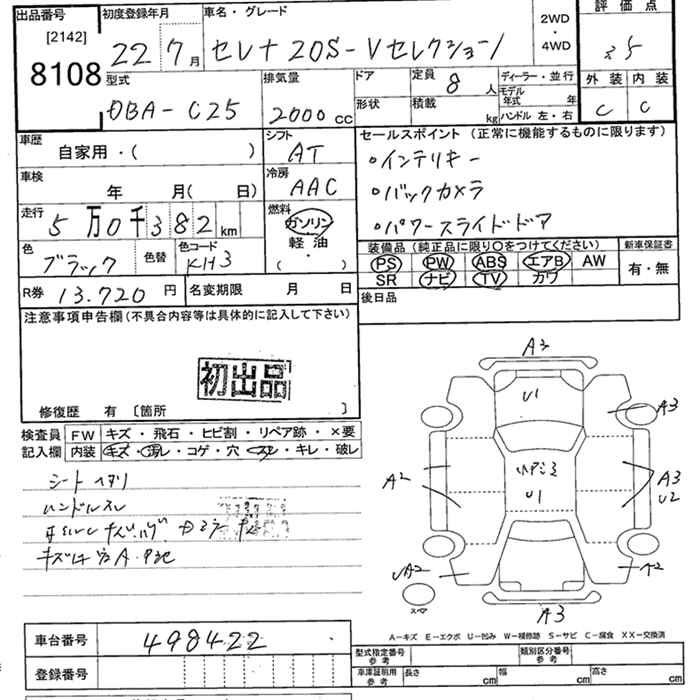 出品番号 初度登録年月 車名・グレード 2WD・4WD 評価点
[2142]
8108 22年7月 セレナ 20S-Vセレクション 3.5
型式 排気量 ドア 定員 8人 ディーラー・並行 外装 内装
DBA-C25 2000cc 形状 積載 kg モデル年式 年 ハンドル 左・右 C C
車歴 シフト セールスポイント(正常に機能するものに限ります)
自家用・( ) AT 。インテリキー
車検 冷房
年 月( 日) AAC 。バックカメラ
走行 燃料
5万0千382km ガソリン 。パワースライドドア
軽油
( )
色 色替 色コード 装備品(純正品に限り○をつけてください) 新車保証書
ブラック KH3 PS PW ABS エアB AW 有・無
SR ナビ TV カワ
R券 13.720円 名変期限 月 日 後日品
注意事項申告欄(不具合内容等は具体的に記入して下さい)
初出品
修復歴 有 〔箇所 〕
検査員 FW キズ・飛石・ヒビ割・リペア跡・×要
記入欄 内装 キズ・汚レ・コゲ・穴・スレ・キレ・破レ
シートヘタリ
ハンドルスレ
A3
U1
A3
A2
U1
A3
U2
UA2
A2
スペア
A3
A-キズ E-エクボ U-凹み W-補修跡 S-サビ C-腐食 XX-交換済
車台番号 498422
型式指定番号 参考 類別区分番号 参考
登録番号
車庫証明用 参考 長さ cm 幅 cm 高さ cm